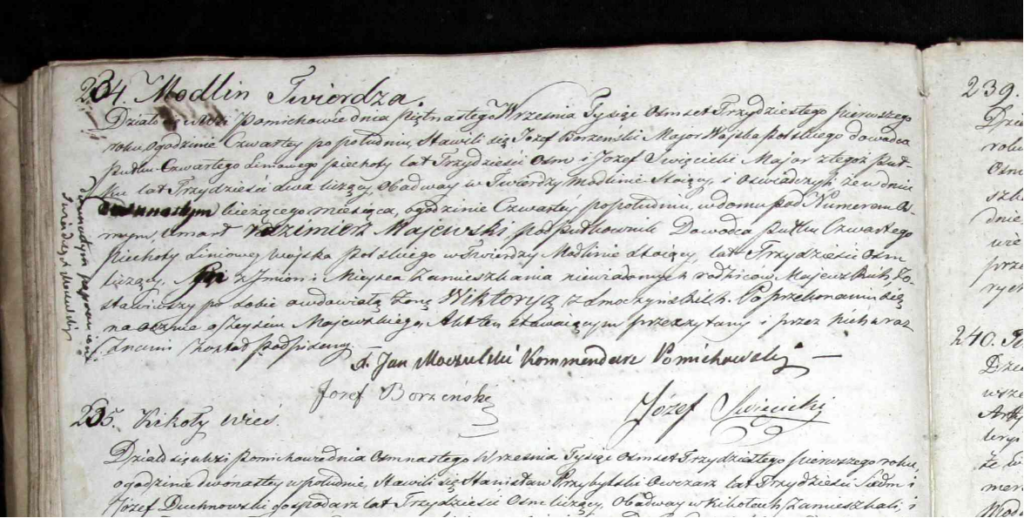 234. Modlin Twierdza.
Działo się we wsi Pomichowie dnia Piętnastego Września Tysiąc Osmset Trzydziestego pierwszego
roku, o godzinie Czwartey po południu, Stawili się Józef Borzeński Major Woyska polskiego dowodca
pułku Czwartego Liniowego piechoty lat Trzydzieści Osm i Józef Swięcicki Major z tegoż puł-
ku lat Trzydzieści dwa liczący, Obadway w Twierdzy Modlinie Stoiący, i Oswiadczyli że w dniu
dwunastym bieżącego miesiąca, o godzinie Czwartey popołudniu, w domu pod Numerem O-
smym, umarł Kazimierz Majewski podpułkownik Dowodca Pułku Czwartego
Piechoty Liniowey Woyska Polskiego w Twierdzy Modlinie Stoiący, lat Trzydzieści Osm
liczący, z Imion i Mieysca Zamieszkania niewiadomych rodziców Majewskich, Zo-
stawiwszy po sobie owdowiałą żonę Wiktoryą z Smoczyńskich. Po przekonaniu się
naocznie o Zeyściu Majewskiego, Akt ten Stawaiącym przeczytany i przez Nich oraz
Znami został podpisany.
X. Jan Moczulski Kommendarz Pomichowski
Józef Borzeński
Józef Swięcicki
dwunastym poprawienie
Swiadczę Moczulski
235. Kikoły wieś.
Działo się we wsi Pomichowie dnia Osmnastego Września Tysiąc Osmset Trzydziestego pierwszego roku,
o godzinie dwunastey w południe, Stawili się Stanisław Przybylski Owczarz lat Trzydzieści Siedm i
Józef Duchnowski gospodarz lat Trzydzieści Osm liczący, Obadway w Kikołach Zamieszkali, i
239.
Dzia
roku
Osm
szka
dnie
prze
rych
240.
Dzie
wsze
Arty
lery
że w
mer
Modl